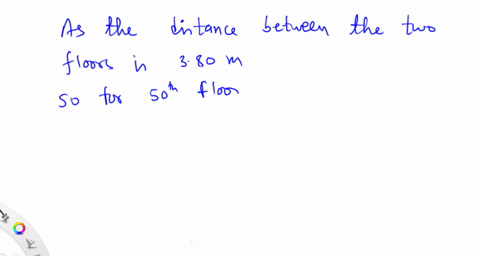 As the distance between the two
floors is 3.80 m
so for 50th floor